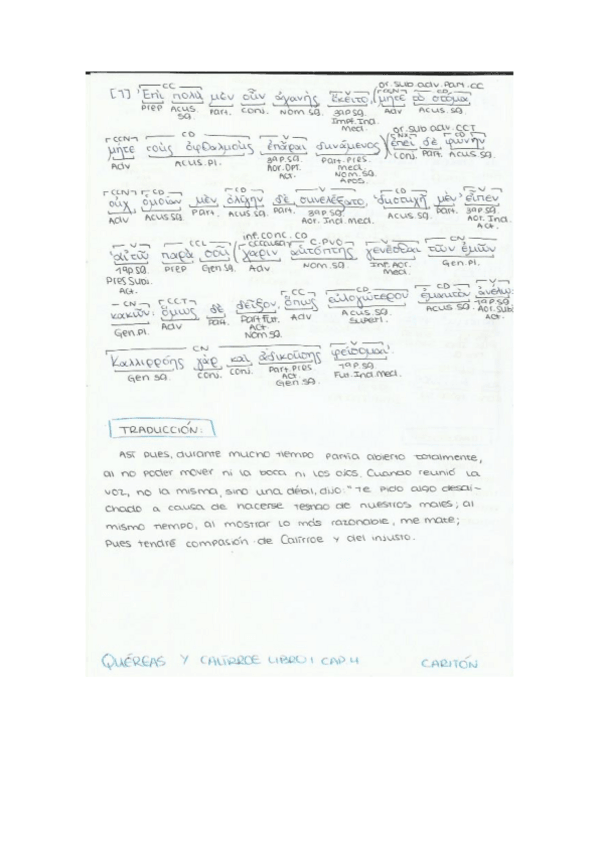 CC or. Sub. adv. Part. CC
[7] Ἐπὶ πολὺ μὲν οὖν ἀχανὴς ἔκειτο, (μήτε τὸ στόμα
Prep Acus. Sg. Part. Conj. Nom. Sg. 3ªP. Sg. Impf. Ind. Med. Adv Acus. Sg.
CCN CD V or. Sub adv. CCT CD
μήτε τοὺς ὀφθαλμοὺς ἐπᾶραι δυνάμενος) (ἐπεὶ δὲ φωνὴν
Adv Acus. Pl. 3ªP. Sg. Aor. Opt. Act. Part. Pres. Med. Nom. Sg. Conj. Part. Acus. Sg.
CCN CD CD V CD V
οὐχ ὁμοίαν μὲν ὀλίγην δὲ συνελέξατο, δυστυχῆ μὲν εἶπεν
Adv Acus Sg. Part. Acus. Sg. Part. 3ªP. Sg. Aor. Ind. Med. Acus. Sg. Part. 3ªP. Sg. Aor. Ind. Act.
V CCL C. PVO V CN
αἰτῶ παρὰ σοῦ (χάριν αὐτόπτης γενέσθαι τῶν ἐμῶν
1ªP. Sg. Pres Subj. Act. Prep Gen Sg. Adv Nom. Sg. Inf. Aor. Med. Gen. Pl.
CN CCT CC CD CD V
κακῶν· ὅμως δὲ δεῖξον, ὅπως εὐλογώτερον ἐμαυτὸν ἀνέλω·
Gen. Pl. Adv Part. Part. Fut. Act. Nom Sg. Adv Acus. Sg. Superl. Acus Sg. 1ªP. Sg. Aor. Subj. Act.
CN V
Καλλιρρόης γὰρ καὶ ἀδικούσης φείσομαι.
Gen Sg. Conj. Conj. Part. Pres Act. Gen Sg. 1ªP. Sg. Fut. Ind. Med.
TRADUCCIÓN:
Así pues, durante mucho tiempo partía abierto totalmente,
al no poder mover ni la boca ni los ojos. Cuando reunió la
voz, no la misma, sino una débil, dijo: "Te pido algo desdi-
chado a causa de hacerse testigo de nuestros males; al
mismo tiempo, al mostrar lo más razonable, me mate;
pues tendré compasión de Calírroe y del injusto.
QUÉREAS Y CALÍRROE LIBRO I CAP. 4 CARITÓN